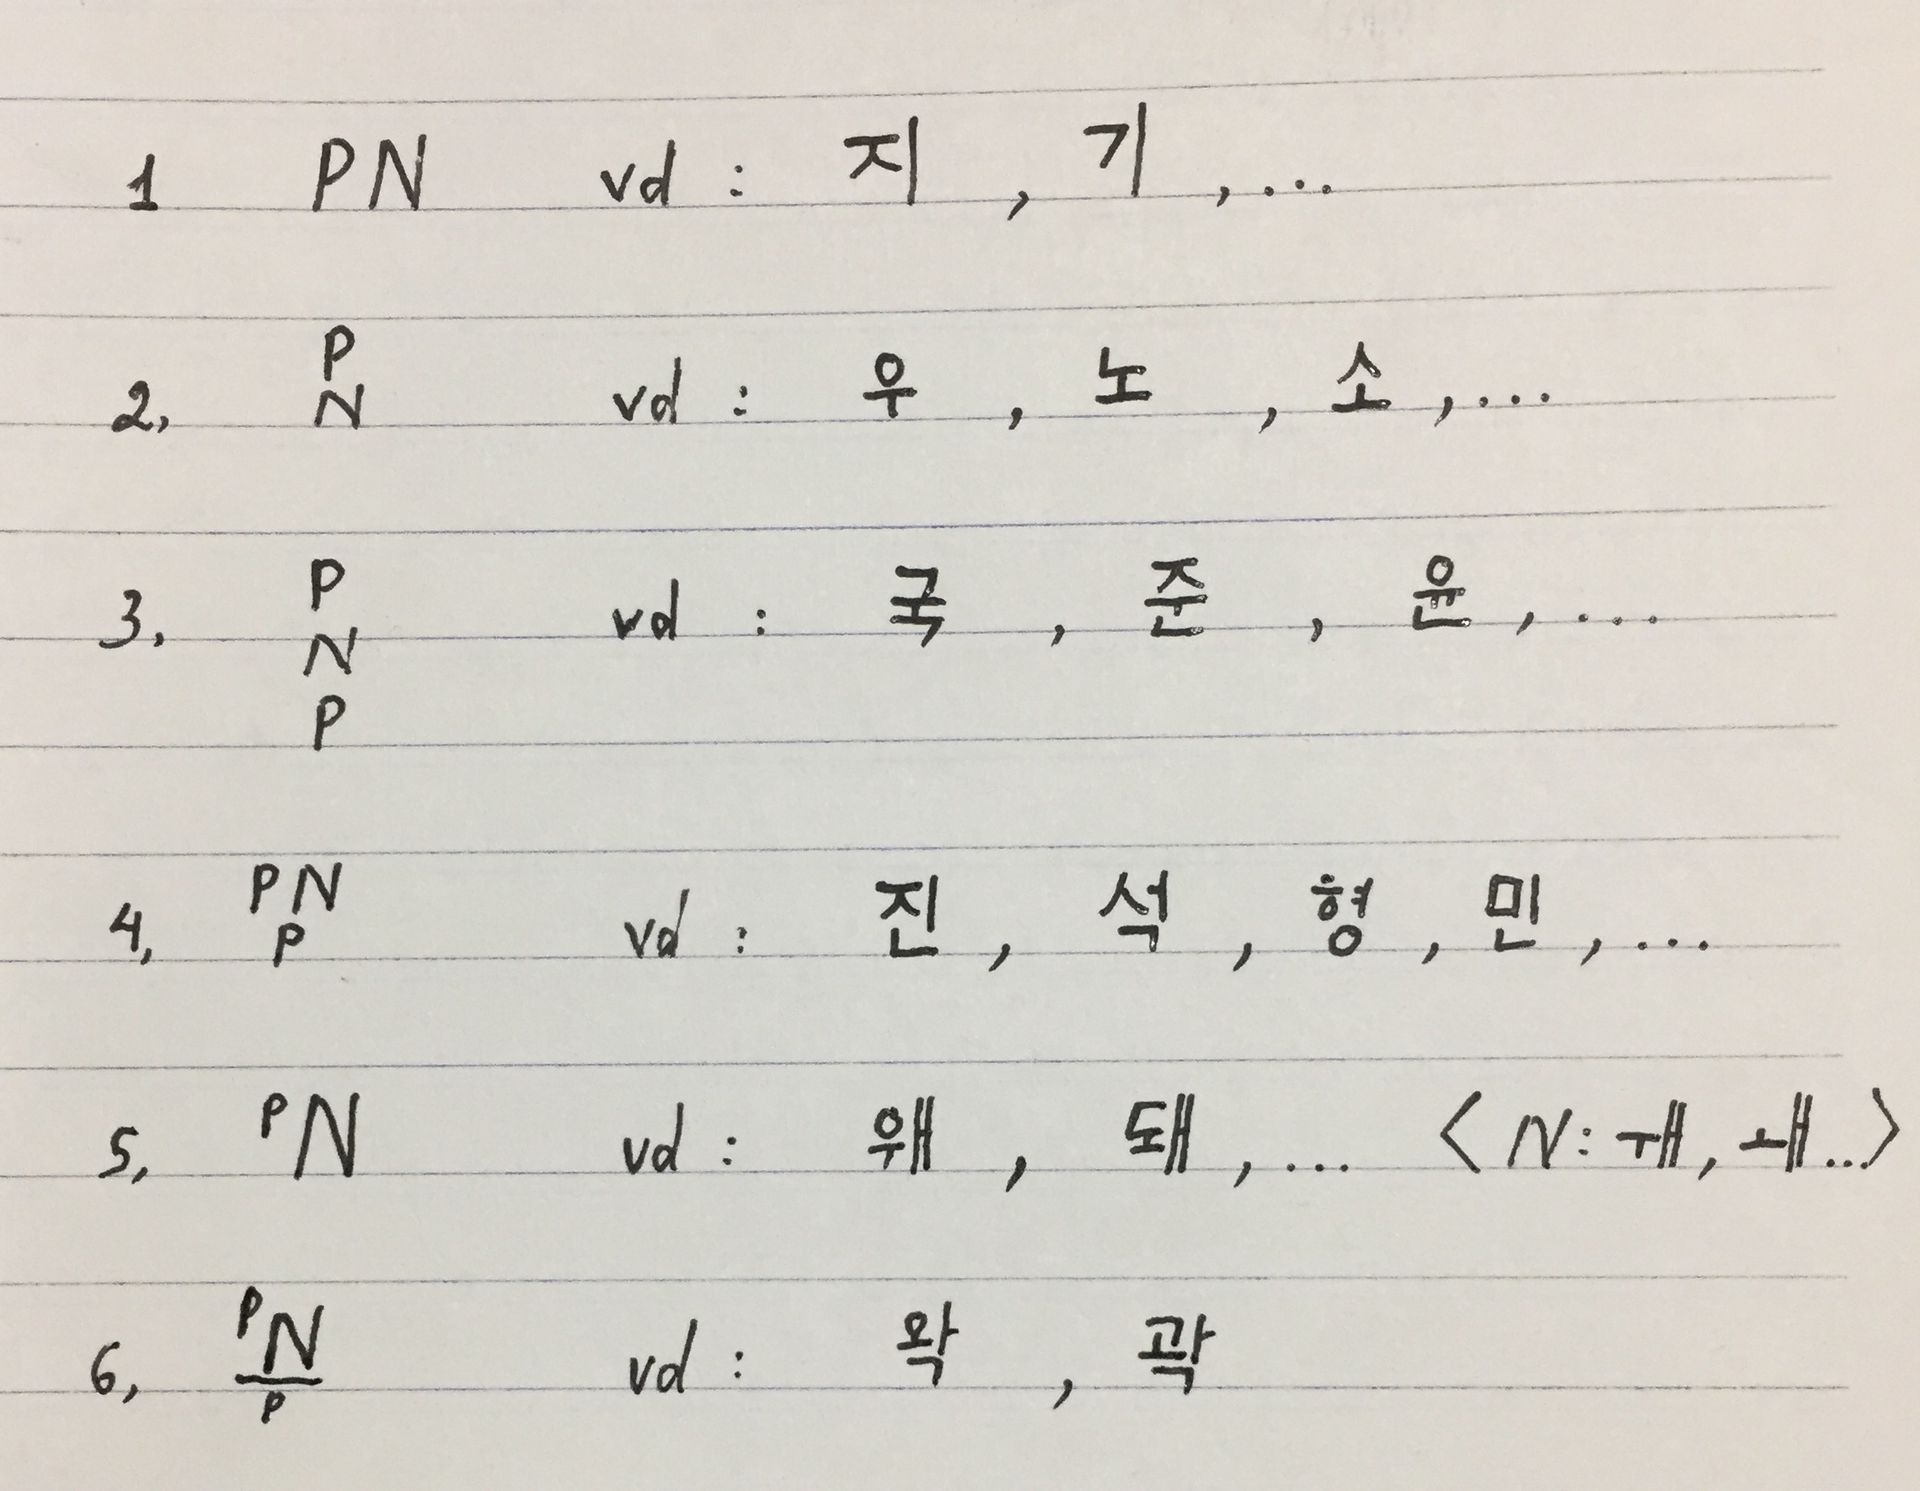 1 PN vd : 지 , 기 , ...
2, P
N vd : 우 , 노 , 소 , ...
3, P
N
P vd : 국 , 준 , 윤 , ...
4, PN
P vd : 진 , 석 , 형 , 민 , ...
5, PN vd : 웨 , 돼 , ... < N : ㅞ , ㅙ ... >
6, PN
P vd : 왁 , 곽